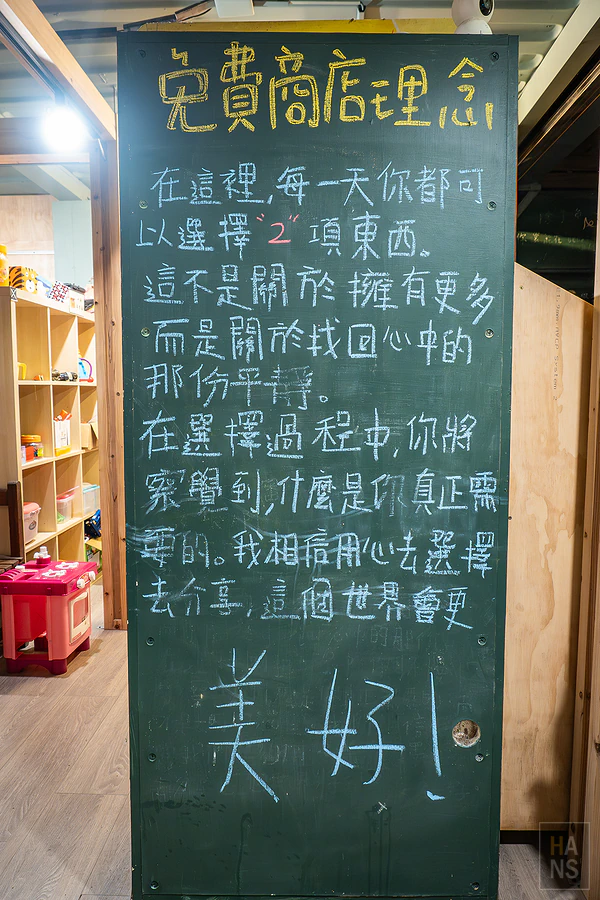 免費商店理念
在這裡,每一天你都可
以選擇"2"項東西。
這不是關於擁有更多
而是關於找回心中的
那份平靜。
在選擇過程中,你將
察覺到,什麼是你真正需
要的。我相信用心去選擇
去分享,這個世界會更
美好!
HANS